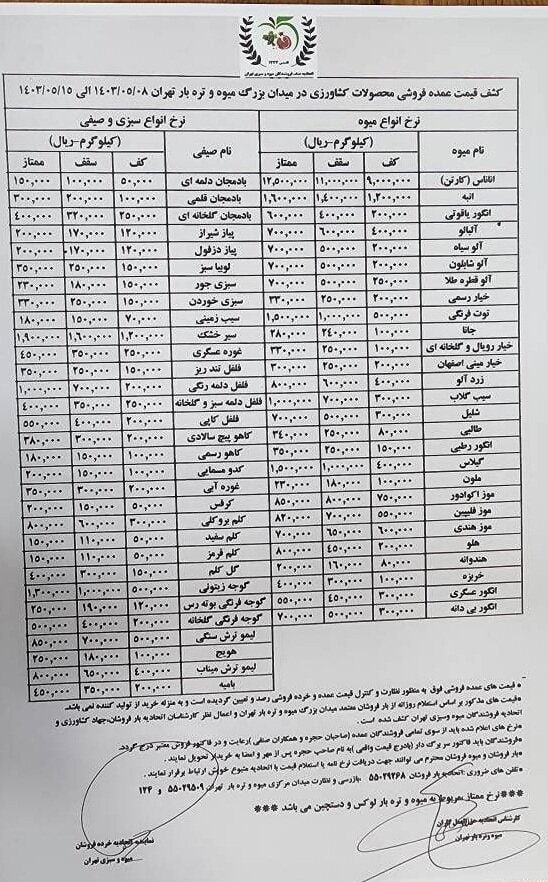 اتحادیه صنف فروشندگان میوه و سبزی تهران
کشف قیمت عمده فروشی محصولات کشاورزی در میدان بزرگ میوه و تره بار تهران ۱۴۰۳/۰۵/۰۸ الی ۱۴۰۳/۰۵/۱۵
نرخ انواع میوه
نام میوه (کیلوگرم-ریال)
کف سقف ممتاز
اناناس (کارتن) ۹,۰۰۰,۰۰۰ ۱۱,۰۰۰,۰۰۰ ۱۲,۵۰۰,۰۰۰
انبه ۱,۲۰۰,۰۰۰ ۱,۴۰۰,۰۰۰ ۱,۶۰۰,۰۰۰
انگور یاقوتی ۲۰۰,۰۰۰ ۴۰۰,۰۰۰ ۶۰۰,۰۰۰
آلبالو ۴۰۰,۰۰۰ ۶۰۰,۰۰۰ ۷۰۰,۰۰۰
آلو سیاه ۲۰۰,۰۰۰ ۵۰۰,۰۰۰ ۷۰۰,۰۰۰
آلو شابلون ۲۰۰,۰۰۰ ۵۰۰,۰۰۰ ۷۰۰,۰۰۰
آلو قطره طلا ۲۵۰,۰۰۰ ۵۰۰,۰۰۰ ۷۰۰,۰۰۰
خیار رسمی ۲۰۰,۰۰۰ ۲۵۰,۰۰۰ ۳۳۰,۰۰۰
توت فرنگی ۵۰۰,۰۰۰ ۱,۰۰۰,۰۰۰ ۱,۵۰۰,۰۰۰
جانا ۱۰۰,۰۰۰ ۲۴۰,۰۰۰ ۲۸۰,۰۰۰
خیار رویال و گلخانه ای ۱۰۰,۰۰۰ ۲۵۰,۰۰۰ ۳۳۰,۰۰۰
خیار مینی اصفهان ۲۰۰,۰۰۰ ۲۵۰,۰۰۰ ۳۰۰,۰۰۰
زرد آلو ۴۰۰,۰۰۰ ۶۰۰,۰۰۰ ۸۰۰,۰۰۰
سیب گلاب ۳۰۰,۰۰۰ ۷۰۰,۰۰۰ ۱,۰۰۰,۰۰۰
شلیل ۳۰۰,۰۰۰ ۵۰۰,۰۰۰ ۷۰۰,۰۰۰
طالبی ۸۰,۰۰۰ ۲۵۰,۰۰۰ ۳۴۰,۰۰۰
انگور رطبی ۱۵۰,۰۰۰ ۲۵۰,۰۰۰ ۳۵۰,۰۰۰
گیلاس ۴۰۰,۰۰۰ ۱,۰۰۰,۰۰۰ ۱,۵۰۰,۰۰۰
ملون ۱۰۰,۰۰۰ ۱۸۰,۰۰۰ ۲۳۰,۰۰۰
موز اکوادور ۷۵۰,۰۰۰ ۸۰۰,۰۰۰ ۸۵۰,۰۰۰
موز فلیپین ۵۵۰,۰۰۰ ۷۰۰,۰۰۰ ۸۲۰,۰۰۰
موز هندی ۶۰۰,۰۰۰ ۶۵۰,۰۰۰ ۷۰۰,۰۰۰
هلو ۲۰۰,۰۰۰ ۴۵۰,۰۰۰ ۸۰۰,۰۰۰
هندوانه ۸۰,۰۰۰ ۱۶۰,۰۰۰ ۲۰۰,۰۰۰
خربزه ۱۰۰,۰۰۰ ۳۰۰,۰۰۰ ۴۰۰,۰۰۰
انگور عسگری ۳۰۰,۰۰۰ ۴۵۰,۰۰۰ ۵۵۰,۰۰۰
انگور بی دانه ۳۰۰,۰۰۰ ۵۰۰,۰۰۰ ۷۰۰,۰۰۰
نرخ انواع سبزی و صیفی
نام صیفی (کیلوگرم-ریال)
کف سقف ممتاز
بادمجان دلمه ای ۵۰,۰۰۰ ۱۰۰,۰۰۰ ۱۵۰,۰۰۰
بادمجان قلمی ۱۰۰,۰۰۰ ۲۰۰,۰۰۰ ۳۰۰,۰۰۰
بادمجان گلخانه ای ۲۵۰,۰۰۰ ۳۲۰,۰۰۰ ۴۰۰,۰۰۰
پیاز شیراز ۱۲۰,۰۰۰ ۱۷۰,۰۰۰ ۲۰۰,۰۰۰
پیاز دزفول ۱۲۰,۰۰۰ ۱۷۰,۰۰۰ ۲۰۰,۰۰۰
لوبیا سبز ۱۵۰,۰۰۰ ۲۵۰,۰۰۰ ۳۵۰,۰۰۰
سبزی جور ۱۵۰,۰۰۰ ۱۸۰,۰۰۰ ۲۳۰,۰۰۰
سبزی خوردن ۱۵۰,۰۰۰ ۲۵۰,۰۰۰ ۳۳۰,۰۰۰
سیب زمینی ۷۰,۰۰۰ ۱۵۰,۰۰۰ ۱۸۰,۰۰۰
سیر خشک ۱,۲۰۰,۰۰۰ ۱,۶۰۰,۰۰۰ ۱,۹۰۰,۰۰۰
غوره عسگری ۲۵۰,۰۰۰ ۳۵۰,۰۰۰ ۴۵۰,۰۰۰
فلفل تند ریز ۱۵۰,۰۰۰ ۲۵۰,۰۰۰ ۳۵۰,۰۰۰
فلفل دلمه رنگی ۲۰۰,۰۰۰ ۷۰۰,۰۰۰ ۱,۰۰۰,۰۰۰
فلفل دلمه سبز و گلخانه ۲۵۰,۰۰۰ ۳۵۰,۰۰۰ ۴۰۰,۰۰۰
فلفل کاپی ۲۰۰,۰۰۰ ۴۰۰,۰۰۰ ۵۵۰,۰۰۰
کاهو پیچ سالادی ۲۰۰,۰۰۰ ۳۰۰,۰۰۰ ۳۸۰,۰۰۰
کاهو رسمی ۱۰۰,۰۰۰ ۱۵۰,۰۰۰ ۱۸۰,۰۰۰
کدو مسمایی ۱۰۰,۰۰۰ ۱۵۰,۰۰۰ ۲۰۰,۰۰۰
غوره آبی ۲۰۰,۰۰۰ ۳۰۰,۰۰۰ ۳۵۰,۰۰۰
کرفس ۵۰,۰۰۰ ۱۵۰,۰۰۰ ۲۰۰,۰۰۰
کلم بروکلی ۳۰۰,۰۰۰ ۶۰۰,۰۰۰ ۸۰۰,۰۰۰
کلم سفید ۵۰,۰۰۰ ۱۱۰,۰۰۰ ۱۵۰,۰۰۰
کلم قرمز ۵۰,۰۰۰ ۱۱۰,۰۰۰ ۱۵۰,۰۰۰
گل کلم ۱۵۰,۰۰۰ ۳۰۰,۰۰۰ ۴۰۰,۰۰۰
گوجه زیتونی ۵۰۰,۰۰۰ ۱,۰۰۰,۰۰۰ ۱,۳۰۰,۰۰۰
گوجه فرنگی بوته رس ۱۲۰,۰۰۰ ۱۹۰,۰۰۰ ۲۵۰,۰۰۰
گوجه فرنگی گلخانه ۲۰۰,۰۰۰ ۴۰۰,۰۰۰ ۵۰۰,۰۰۰
لیمو ترش سنگی ۵۰۰,۰۰۰ ۷۰۰,۰۰۰ ۸۵۰,۰۰۰
هویج ۱۰۰,۰۰۰ ۱۸۰,۰۰۰ ۲۵۰,۰۰۰
لیمو ترش میناب ۴۰۰,۰۰۰ ۶۵۰,۰۰۰ ۸۰۰,۰۰۰
بامیه ۲۰۰,۰۰۰ ۳۵۰,۰۰۰ ۴۵۰,۰۰۰
* قیمت های عمده فروشی فوق به منظور نظارت و کنترل قیمت عمده و خرده فروشی رصد و تعیین گردیده است و به منزله خرید از تولید کننده نمی باشد.
* قیمت های مذکور بر اساس استعلام روزانه از بار فروشان معتمد میدان بزرگ میوه و تره بار تهران و اعمال نظر کارشناسان اتحادیه بار فروشان، جهاد کشاورزی و
اتحادیه فروشندگان میوه وسبزی تهران کشف شده است .
* نرخ های اعلام شده باید از سوی تمامی فروشندگان عمده (صاحبان حجره و همکاران صنفی) رعایت و در فاکتور فروش معتبر درج گردد.
* فروشندگان باید فاکتور سربرگ دار (بادرج قیمت واقعی) به نام صاحب حجره پس از مهر و امضا به خریدار تحویل نمایند .
* بار فروشان و میوه فروشان محترم می توانند جهت دریافت نرخ نامه یا استعلام قیمت با اتحادیه متبوع خویش ارتباط برقرار نمایند .
* تلفن های ضروری : اتحادیه بار فروشان ۵۵۰۲۹۲۶۸ .بازرسی و نظارت میدان مرکزی میوه و تره بار تهران ۵۵۰۲۹۵۰۹ و ۱۲۴
***نرخ ممتاز مربوط به میوه و تره بار لوکس و دستچین می باشد ***
کارشناس اتحادیه
میوه و تره بار تهران
نماینده اتحادیه خرده فروشان
میوه و سبزی تهران